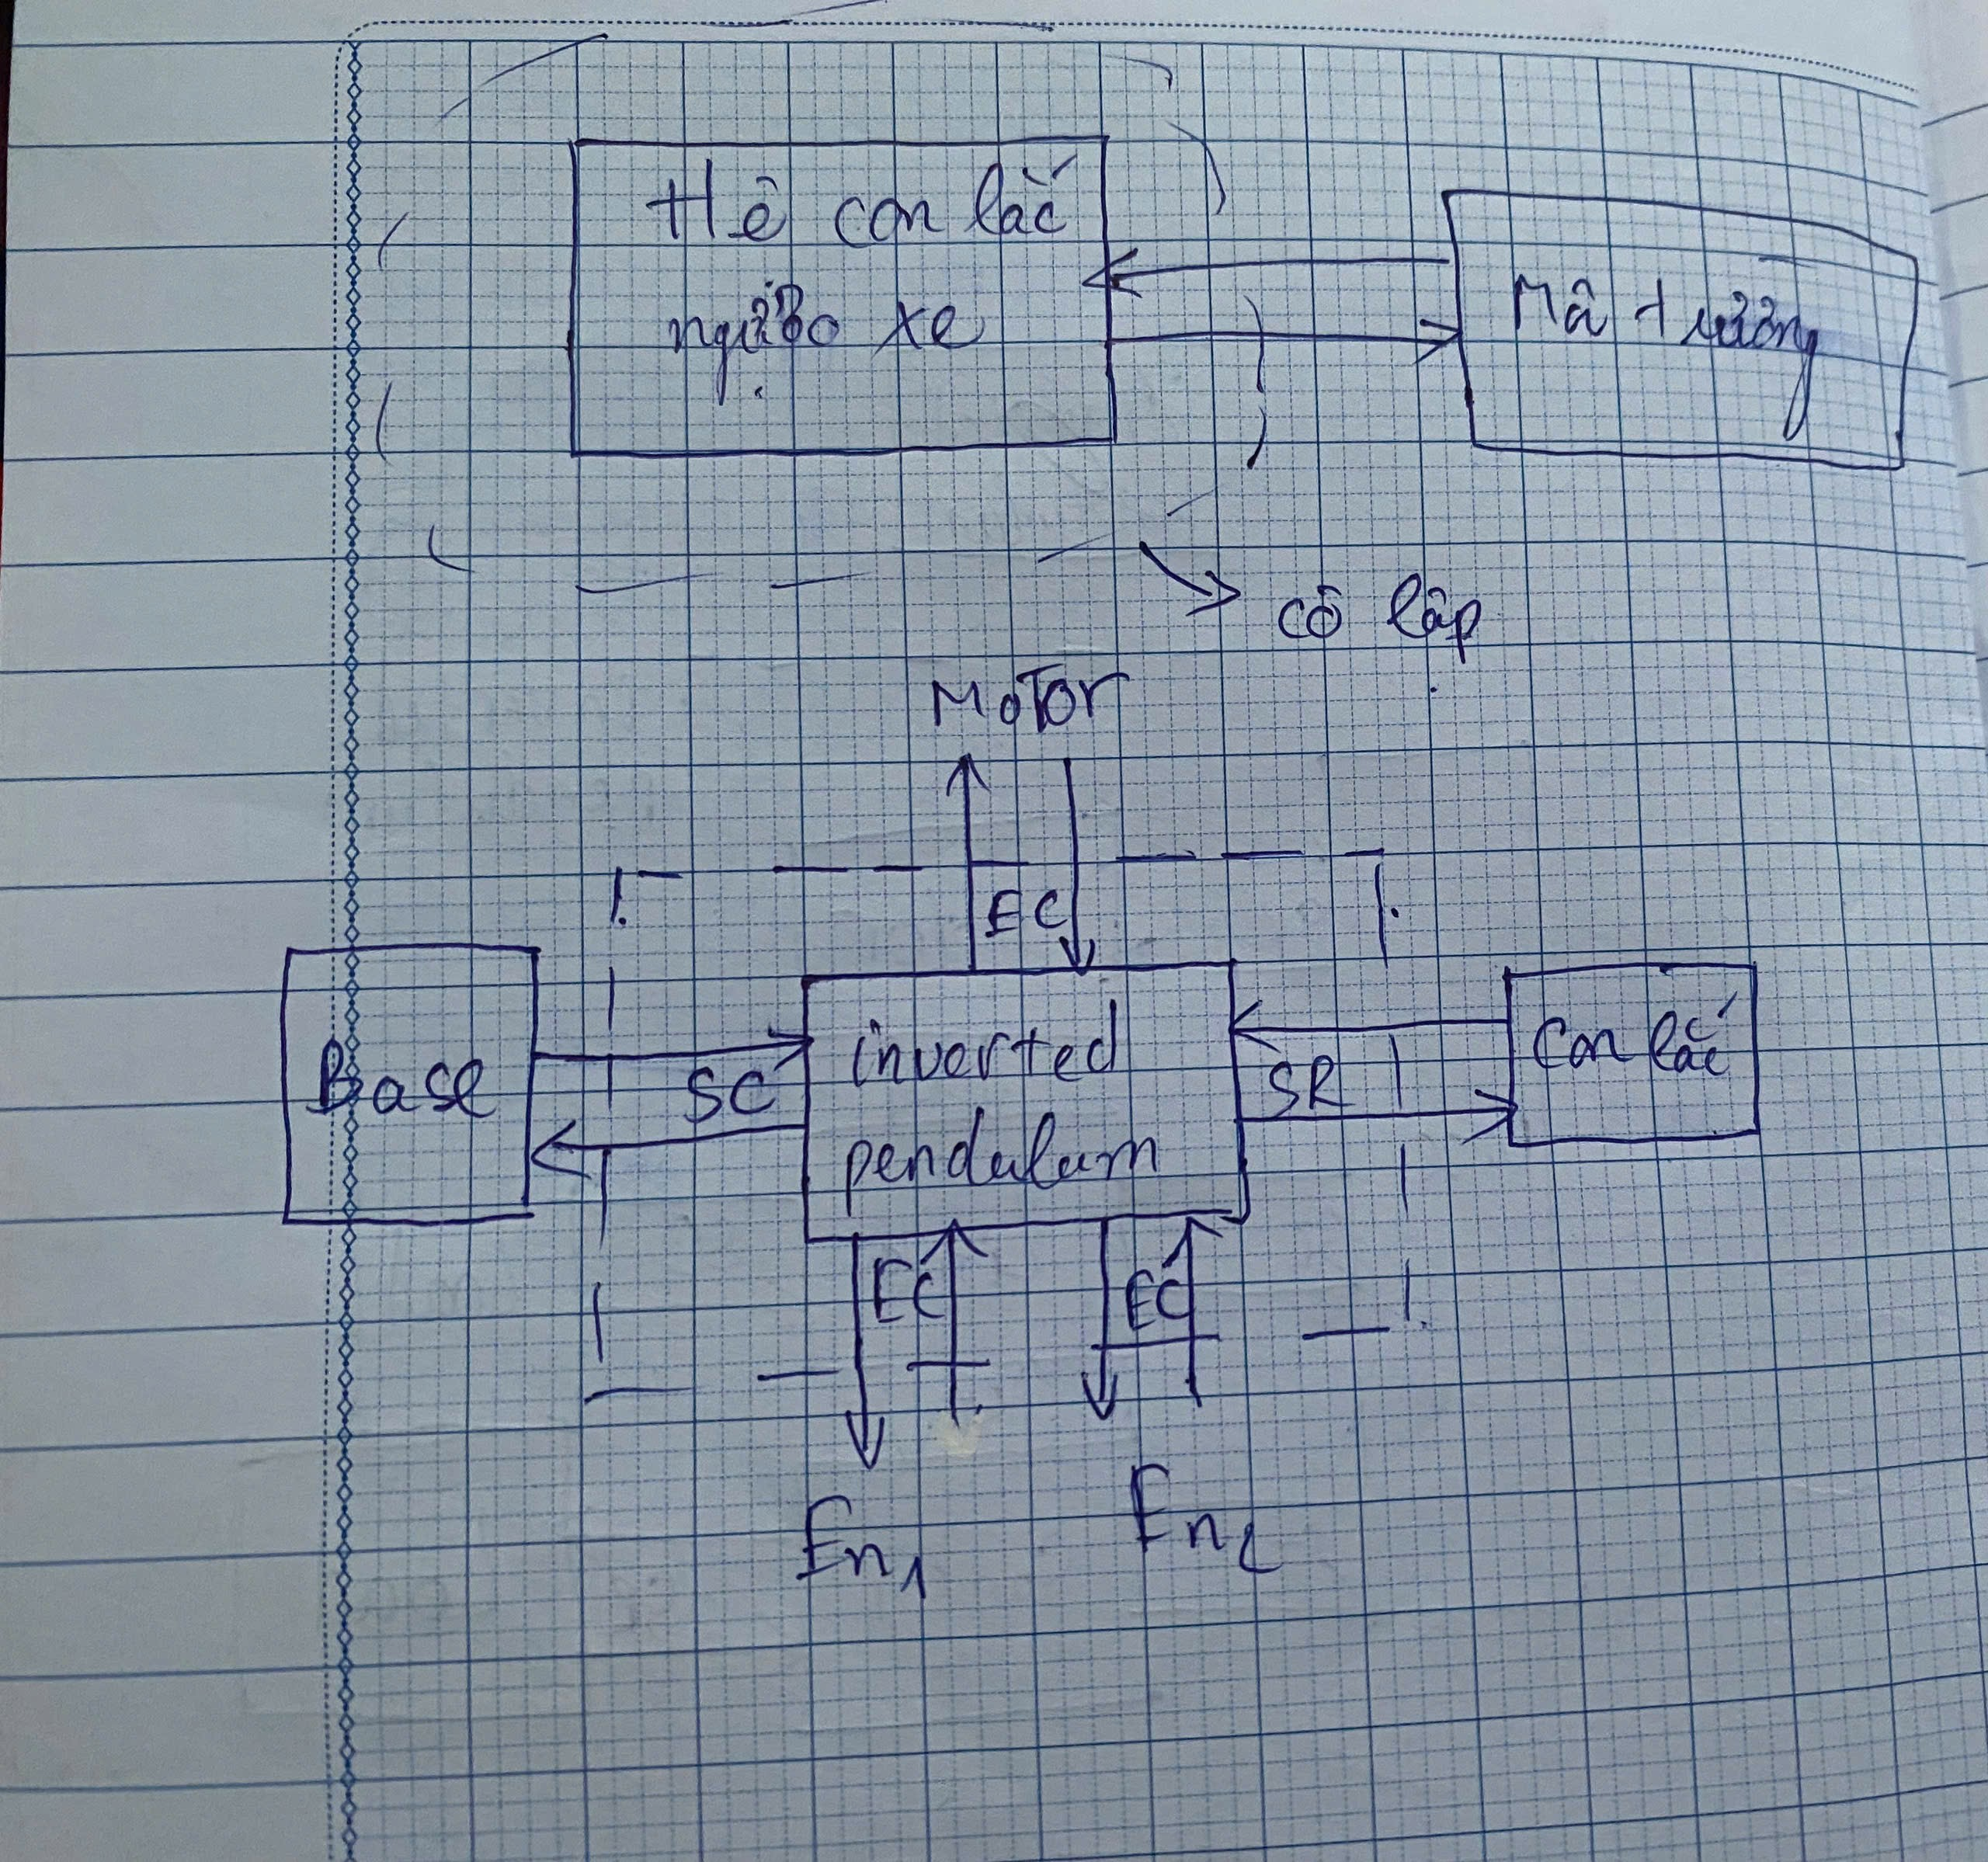 Hệ con lắc
ngược xe
Mô trường
cô lập
MoTor
EC
Base
SC
inverted
pendulum
SR
Con lắc
EC
EC
En1
En2